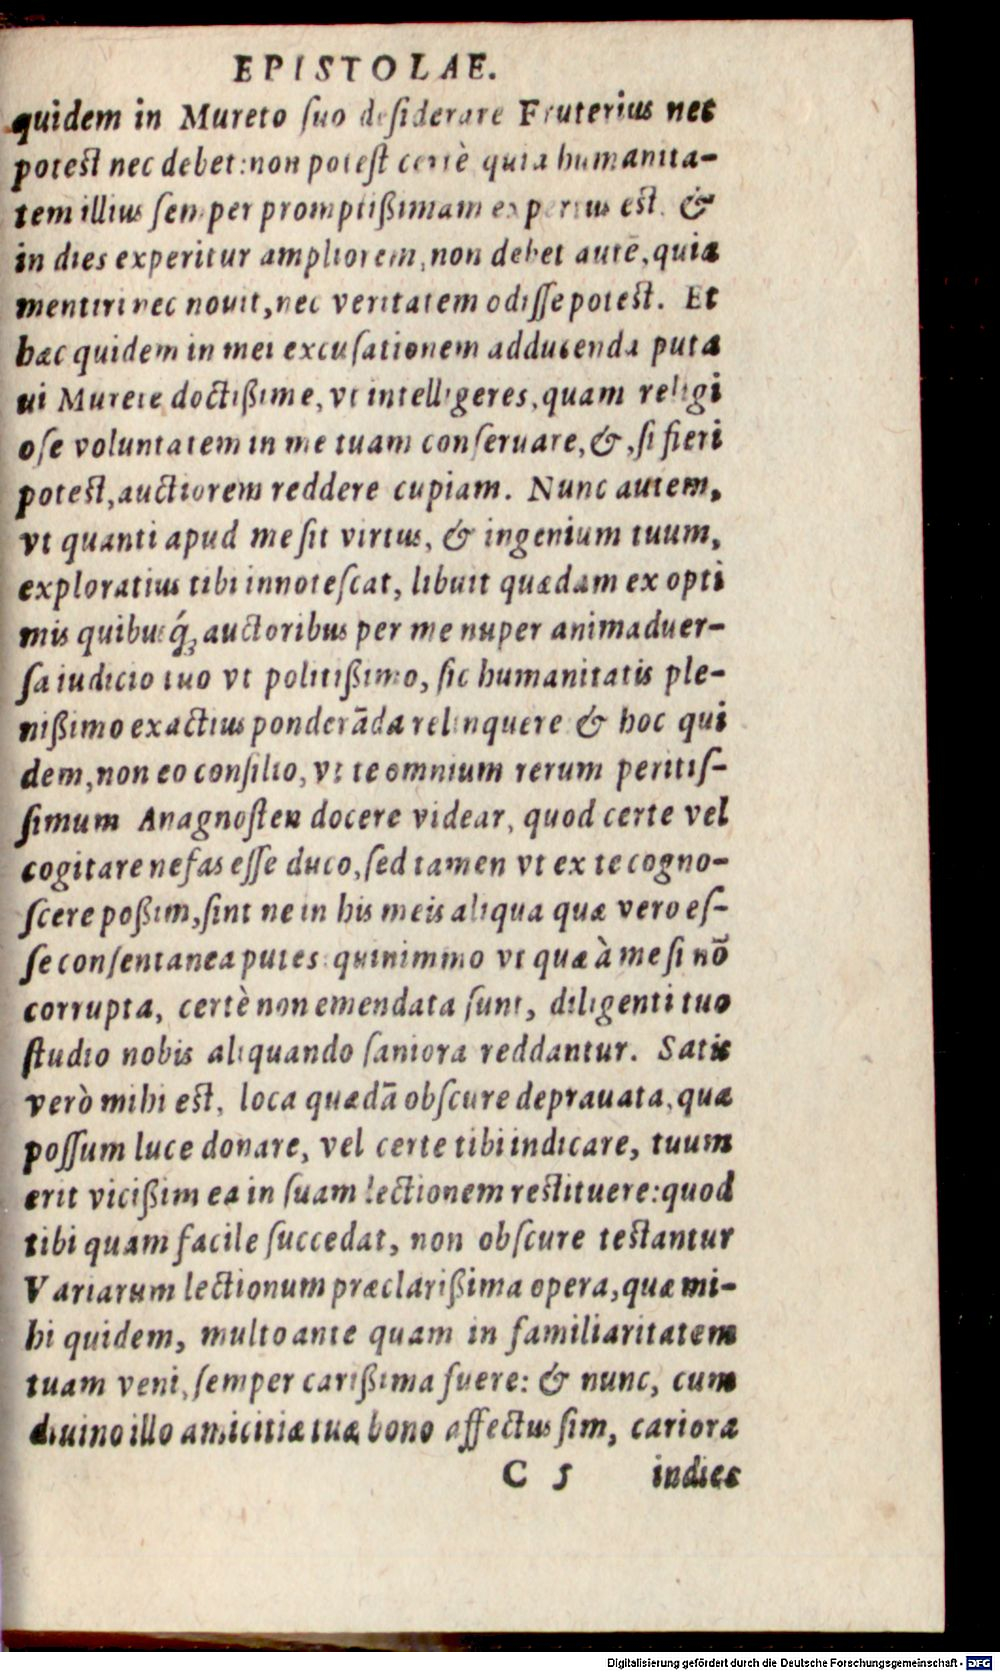 EPISTOLAE.
quidem in Mureto ſuo deſiderare Fruterius nec
potest nec debet: non poteſt certè quia humanita-
tem illius ſemper promptißimam expertus est. &
in dies experitur ampliorem, non debet autē, quia
mentiri nec nouit, nec veritatem odiſſe potest. Et
hæc quidem in mei excuſationem adducenda puta
ui Murete doctißime, vt intelligeres, quam religi
oſe voluntatem in me tuam conſeruare, &, ſi fieri
potest, auctiorem reddere cupiam. Nunc autem,
vt quanti apud me ſit virtus, & ingenium tuum,
exploratius tibi innoteſcat, libuit quædam ex opti
mis quibusq́; auctoribus per me nuper animaduer-
ſa iudicio tuo vt politißimo, ſic humanitatis ple-
nißimo exactius ponderāda relinquere & hoc qui
dem, non eo conſilio, vt te omnium rerum peritiſ-
ſimum Anagnoſten docere videar, quod certe vel
cogitare nefas eſſe duco, ſed tamen vt ex te cogno-
ſcere poßim, ſint ne in his meis aliqua quæ vero eſ-
ſe conſentanea putes: quinimmo vt quæ à me ſi nō
corrupta, certè non emendata ſunt, diligenti tuo
ſtudio nobis aliquando ſaniora reddantur. Satis
verò mihi est, loca quædā obſcure deprauata, quæ
poſſum luce donare, vel certe tibi indicare, tuum
erit vicißim ea in ſuam lectionem restituere: quod
tibi quam facile ſuccedat, non obſcure testantur
Variarum lectionum præclarißima opera, quæ mi-
hi quidem, multo ante quam in familiaritatem
tuam veni, ſemper carißima fuere: & nunc, cum
diuino illo amicitiæ tuæ bono affectus ſim, cariora
C 5 indies
Digitalisierung gefördert durch die Deutsche Forschungsgemeinschaft - DFG